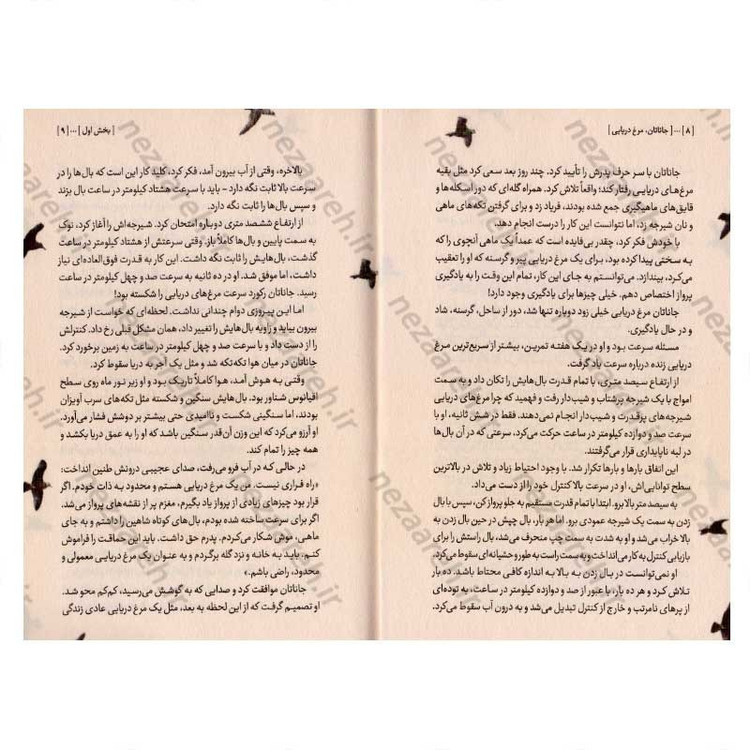 [۸] ... [ جاناتان، مرغ دریایی ]
جاناتان با سر حرف پدرش را تأیید کرد. چند روز بعد سعی کرد مثل بقیه
مرغ‌های دریایی رفتار کند؛ واقعاً تلاش کرد. همراه گله‌ای که دور اسکله‌ها و
قایق‌های ماهیگیری جمع شده بودند، فریاد زد و برای گرفتن تکه‌های ماهی
و نان شیرجه زد، اما نتوانست این کار را درست انجام دهد.
با خودش فکر کرد، چقدر بی‌فایده است که عمداً یک ماهی آنچوی را که
به سختی پیدا کرده بود، برای یک مرغ دریایی پیر و گرسنه که او را تعقیب
می‌کرد، بیندازد. می‌توانستم به جای این کار، تمام این وقت را به یادگیری
پرواز اختصاص دهم. خیلی چیزها برای یادگیری وجود دارد!
جاناتان مرغ دریایی خیلی زود دوباره تنها شد، دور از ساحل، گرسنه، شاد
و در حال یادگیری.
مسئله سرعت بود و او در یک هفته تمرین، بیشتر از سریع‌ترین مرغ
دریایی زنده درباره سرعت یاد گرفت.
از ارتفاع سیصد متری، با تمام قدرت بال‌هایش را تکان داد و به سمت
امواج با یک شیرجه پرشتاب و شیب‌دار رفت و فهمید که چرا مرغ‌های دریایی
شیرجه‌های پرقدرت و شیب‌دار انجام نمی‌دهند. فقط در شش ثانیه، او با
سرعت صد و دوازده کیلومتر در ساعت حرکت می‌کرد، سرعتی که در آن بال‌ها
در لبه ناپایداری قرار می‌گرفتند.
این اتفاق بارها و بارها تکرار شد. با وجود احتیاط زیاد و تلاش در بالاترین
سطح توانایی‌اش، او در سرعت بالا کنترل خود را از دست می‌داد.
به سیصد متر بالا برو. ابتدا با تمام قدرت مستقیم به جلو پرواز کن، سپس با بال
زدن به سمت یک شیرجه عمودی برو. اما هر بار، بال چپش در حین بال زدن به
بالا خراب می‌شد و او به شدت به سمت چپ منحرف می‌شد، بال راستش را برای
بازیابی کنترل به کار می‌انداخت و به سمت راست به طور وحشیانه‌ای سقوط می‌کرد.
او نمی‌توانست در بال زدن به بالا به اندازه کافی محتاط باشد. ده بار
تلاش کرد و هر ده بار، با عبور از صد و دوازده کیلومتر در ساعت، به توده‌ای
از پرهای نامرتب و خارج از کنترل تبدیل می‌شد و به درون آب سقوط می‌کرد.
[ بخش اول ] ... [۹]
بالاخره، وقتی از آب بیرون آمد، فکر کرد، کلید کار این است که بال‌ها را در
سرعت بالا ثابت نگه دارد - باید با سرعت هشتاد کیلومتر در ساعت بال بزند
و سپس بال‌ها را ثابت نگه دارد.
از ارتفاع ششصد متری دوباره امتحان کرد. شیرجه‌اش را آغاز کرد، نوک
به سمت پایین و بال‌ها کاملاً باز. وقتی سرعتش از هشتاد کیلومتر در ساعت
گذشت، بال‌هایش را ثابت نگه داشت. این کار به قدرت فوق‌العاده‌ای نیاز
داشت، اما موفق شد. او در ده ثانیه به سرعت صد و چهل کیلومتر در ساعت
رسید. جاناتان رکورد سرعت مرغ‌های دریایی را شکسته بود!
اما این پیروزی دوام چندانی نداشت. لحظه‌ای که خواست از شیرجه
بیرون بیاید و زاویه بال‌هایش را تغییر داد، همان مشکل قبلی رخ داد. کنترلش
را از دست داد و با سرعت صد و چهل کیلومتر در ساعت به زمین برخورد کرد.
جاناتان در میان هوا تکه‌تکه شد و مثل یک آجر به دریا سقوط کرد.
وقتی به هوش آمد، هوا کاملاً تاریک بود و او زیر نور ماه روی سطح
اقیانوس شناور بود. بال‌هایش سنگین و شکسته مثل تکه‌های سرب آویزان
بودند، اما سنگینی شکست و ناامیدی حتی بیشتر بر دوشش فشار می‌آورد.
او آرزو می‌کرد که این وزن آن‌قدر سنگین باشد که او را به عمق دریا بکشد و
همه چیز را تمام کند.
در حالی که در آب فرو می‌رفت، صدای عجیبی درونش طنین انداخت:
«راه فراری نیست. من یک مرغ دریایی هستم و محدود به ذات خودم. اگر
قرار بود چیزهای زیادی از پرواز یاد بگیرم، مغزم پر از نقشه‌های پرواز می‌شد.
اگر برای سرعت ساخته شده بودم، بال‌های کوتاه شاهین را داشتم و به جای
ماهی، موش شکار می‌کردم. پدرم حق داشت. باید این حماقت را فراموش
کنم. باید به خانه و نزد گله برگردم و به عنوان یک مرغ دریایی معمولی و
محدود، راضی باشم.»
جاناتان موافقت کرد و صدایی که به گوشش می‌رسید، کم‌کم محو شد.
او تصمیم گرفت که از این لحظه به بعد، مثل یک مرغ دریایی عادی زندگی
nezaareh.ir